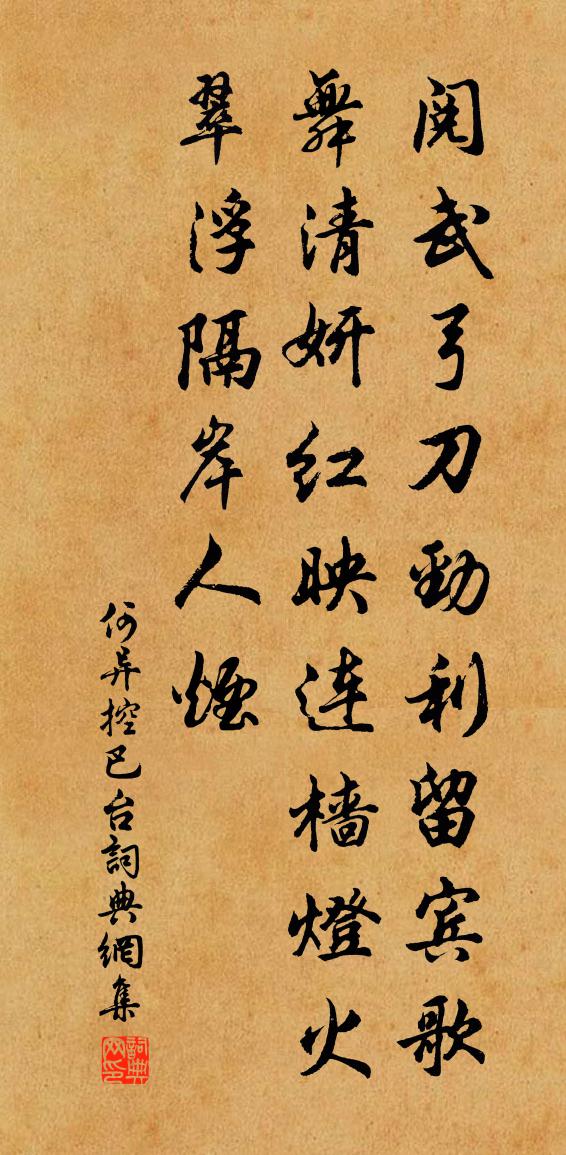 閱武弓刀勁利留宾歌
舞清妍红映连檣燈火
翠浮隔岸人煙
何异控巴台詞典網集
詞典
网印